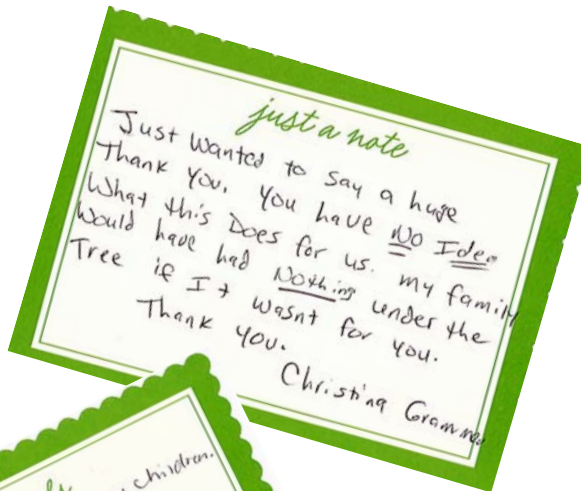 just a note
Just Wanted to say a huge
Thank you. You have No Idea
What this Does for us. my family
Would have had Nothing under the
Tree if It wasnt for you.
Thank you.
Christina
children.